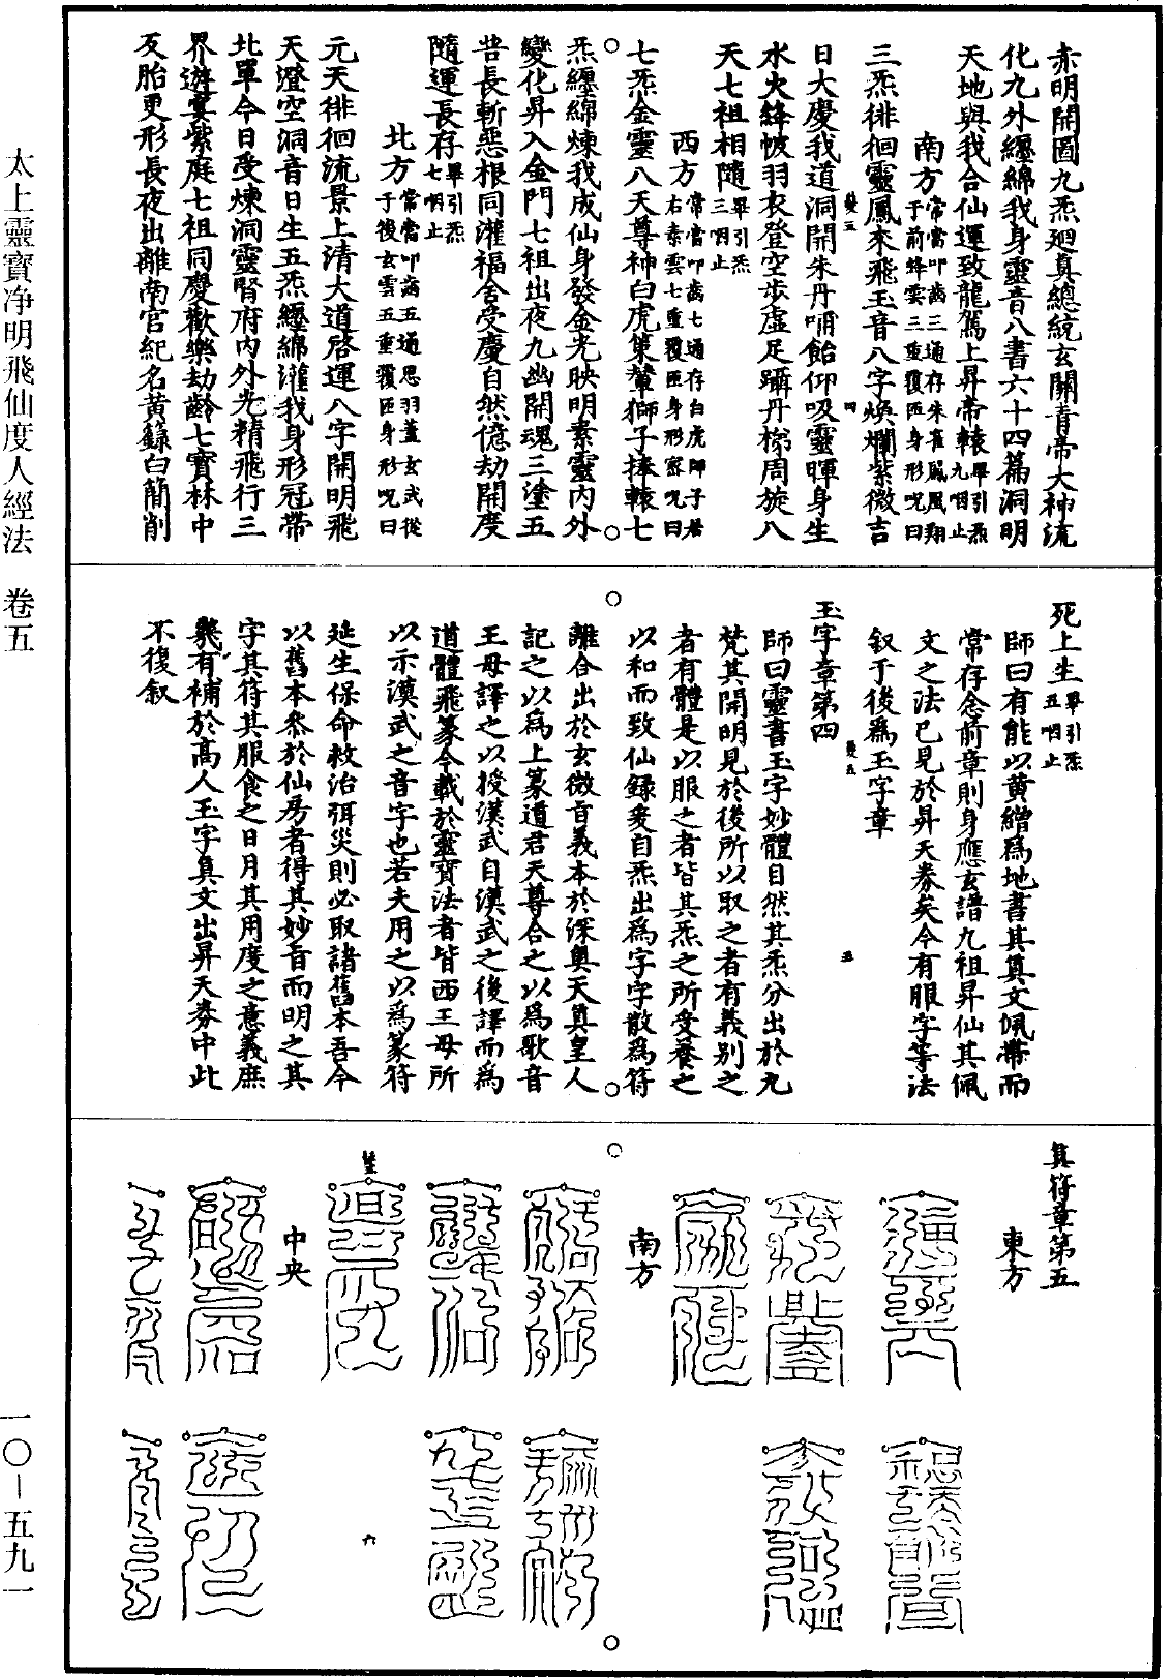 赤明開圖九炁廻真總統玄關青帝大神流
化九外纏綿我身靈音八書六十四篇洞明
天地與我合仙運致龍駕上昇帝轅九咽止畢引炁
南方常當叩齒三通存朱雀鳳凰翔于前絳雲三重覆匝身形呪曰
三炁徘徊靈鳳來飛玉音八字煥爛紫微吉
日大慶我道洞開朱丹哺飴仰吸靈暉身生
水火絳帔羽衣登空步虛足躡丹梯周旋八
天七祖相隨畢引炁三咽止
西方常當叩齒七通存白虎師子居右素雲七重覆匝身形密呪曰
七炁金靈八天尊神白虎策輦獅子捧轅七
炁纏綿煉我成仙身發金光映明素靈内外
變化昇入金門七祖出夜九幽開魂三塗五
苦長斬惡根同灌福舍受慶自然億劫開度
隨運長存畢引炁七咽止
北方常當叩齒五通思羽蓋玄武從于後玄雲五重覆匝身形呪曰
元天徘徊流景上清大道啓運八字開明飛
天澄空洞音日生五炁纏綿灌我身形冠帶
北單今日受煉洞靈腎府内外光精飛行三
界遊宴紫庭七祖同慶歡樂劫齡七寳林中
反胎更形長夜出離南宫紀名黄籙白簡削
死上生畢引炁五咽止
師曰有能以黄繒爲地書其真文佩帶而
常存念前章則身應玄譜九祖昇仙其佩
文之法已見於昇天券矣今有服字等法
叙于後爲玉字章
玉字章第四
師曰靈書玉字妙體自然其炁分出於九
梵其開明見於後所以取之者有義别之
者有體是以服之者皆其炁之所受養之
以和而致仙録爰自炁出爲字字散爲符
離合出於玄微百義本於深奥天真皇人
記之以爲上篆道君天尊合之以爲歌音
王母譯之以授漢武自漢武之後譯而爲
道體飛篆今載於靈寳法者皆西王母所
以示漢武之音字也若夫用之以爲篆符
延生保命救治弭災則必取諸舊本吾今
以舊本參於仙房者得其妙旨而明之其
字其符其服食之日月其用度之意義庶
幾有補於髙人玉字真文出昇天券中此
不復叙
真符章第五
東方
南方
中央
太上靈寶净明飛仙度人經法 卷五
一〇—五九一